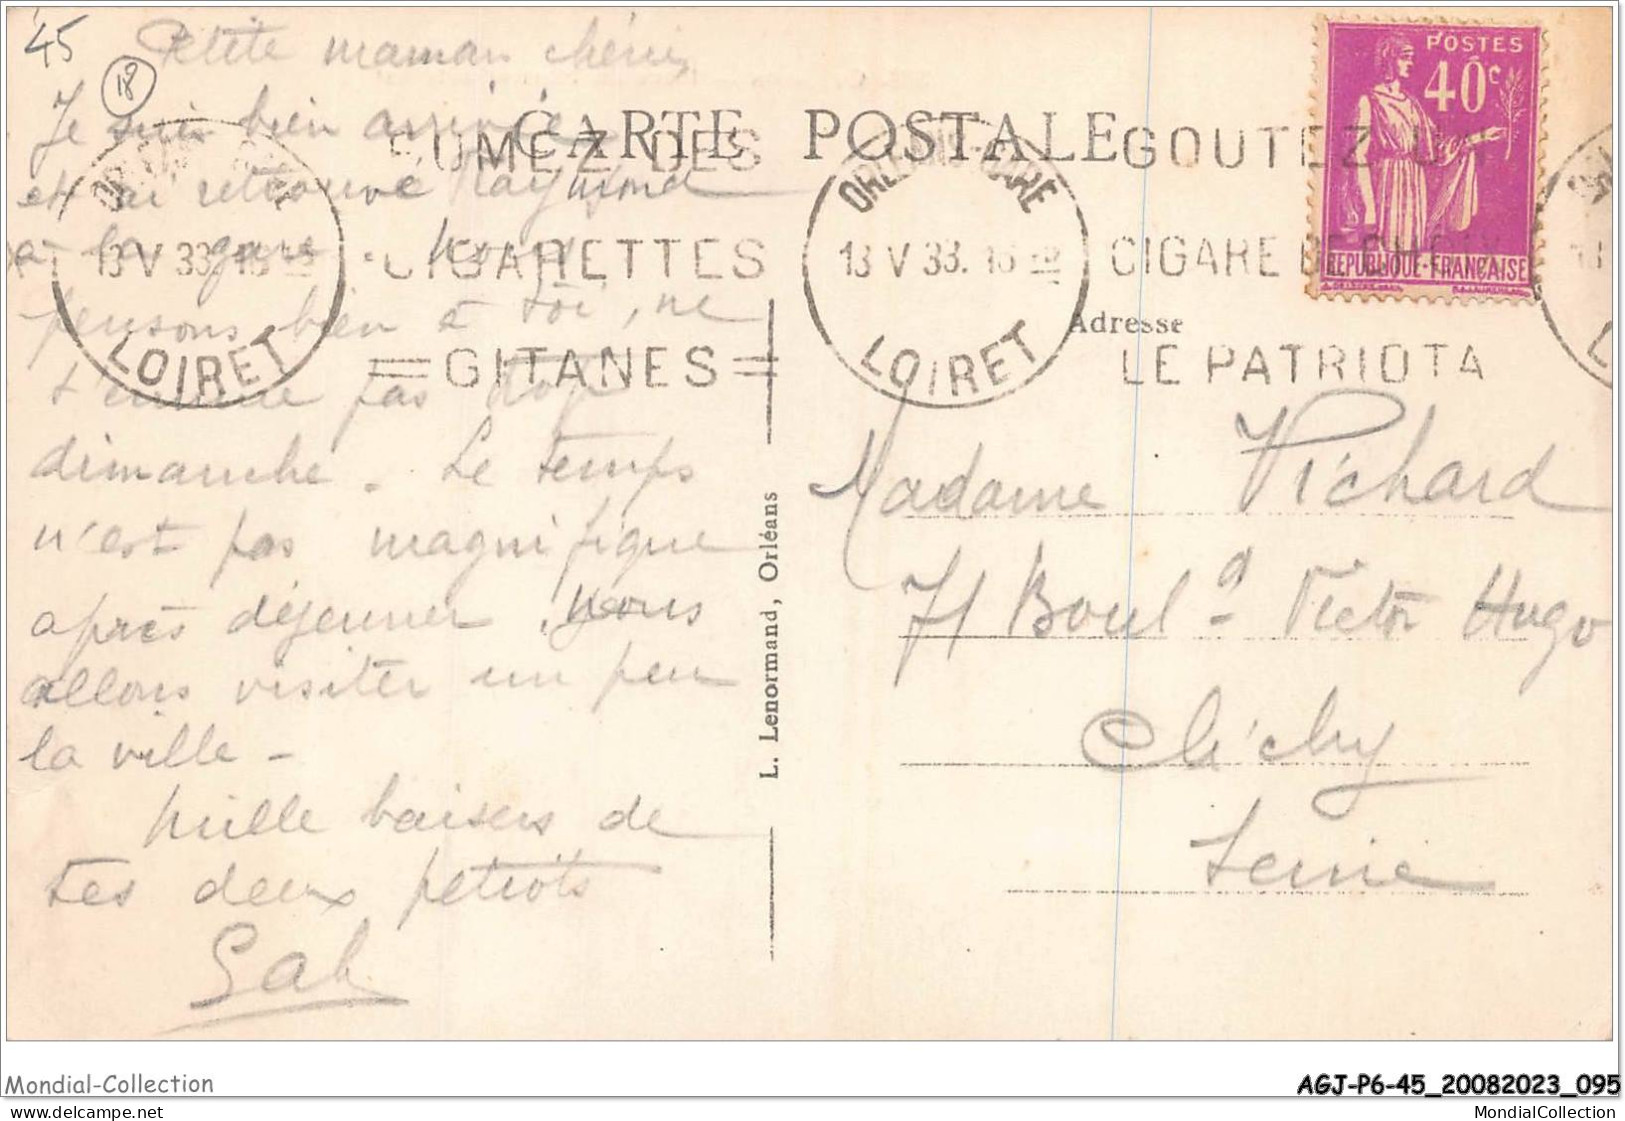 45
18
Petite maman chérie,
Je suis bien arrivée
et ai retrouvé Raymond
à la gare. Nous
pensons bien à toi, ne
t'ennuie pas trop
dimanche. Le temps
n'est pas magnifique
après déjeuner. Nous
allons visiter un peu
la ville -
Mille baisers de
tes deux petiots
Gab
CARTE POSTALE
FUMEZ DES
CIGARETTES
=GITANES=
GOUTEZ UN
CIGARE DE CHOIX
LE PATRIOTA
ORLEANS-GARE
13 V 33
LOIRET
ORLEANS-GARE
13 V 33. 18
LOIRET
POSTES
40c
REPUBLIQUE-FRANÇAISE
L. Lenormand, Orléans
Adresse
Madame Pichard
71 Boul d Victor Hugo
Clichy
Seine
Mondial-Collection
AGJ-P6-45_20082023_095
© delcampe.net
MondialCollection